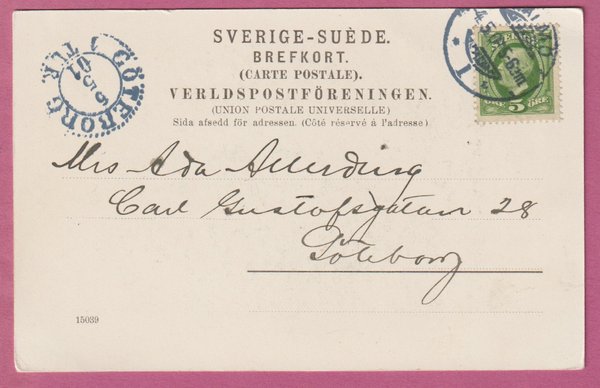 SVERIGE-SUÈDE.
BREFKORT.
(CARTE POSTALE).
VERLDSPOSTFÖRENINGEN.
(UNION POSTALE UNIVERSELLE)
Sida afsedd för adressen. (Côté réservé à l'adresse).
GÖTEBORG 1 TUR
6 5 01
5 ÖRE
Mrs Ada
Carl Gustafsgatan 28
Göteborg
15039